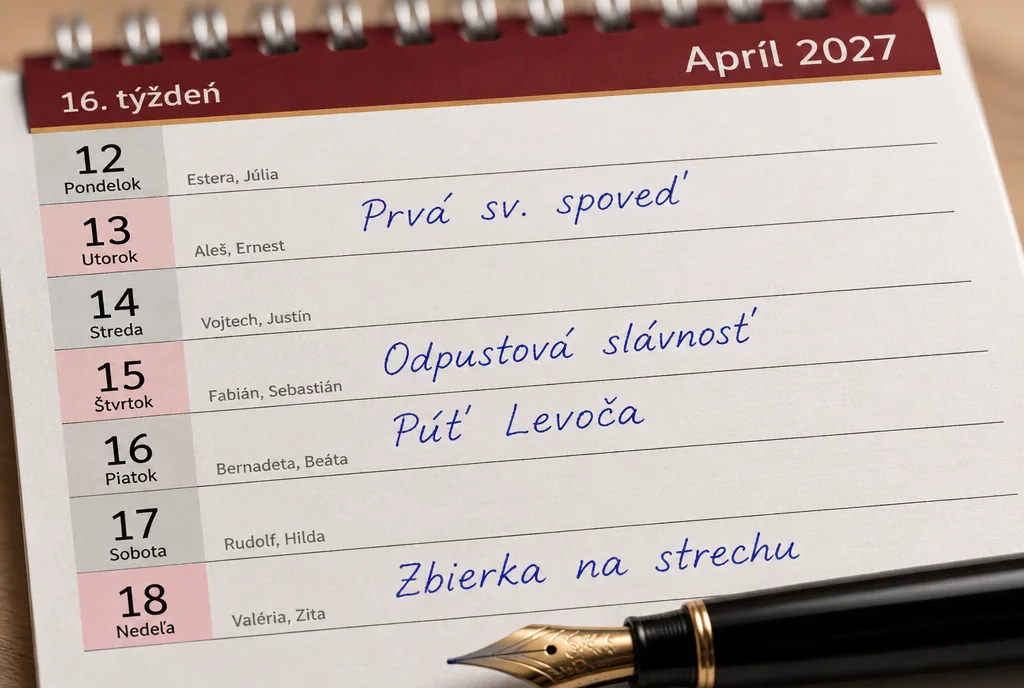 16. týždeň
Apríl 2027
12
Pondelok
Estera, Júlia
13
Utorok
Aleš, Ernest
Prvá sv. spoveď
14
Streda
Vojtech, Justín
15
Štvrtok
Fabián, Sebastián
Odpustová slávnosť
16
Piatok
Bernadeta, Beáta
Púť Levoča
17
Sobota
Rudolf, Hilda
18
Nedeľa
Valéria, Zita
Zbierka na strechu